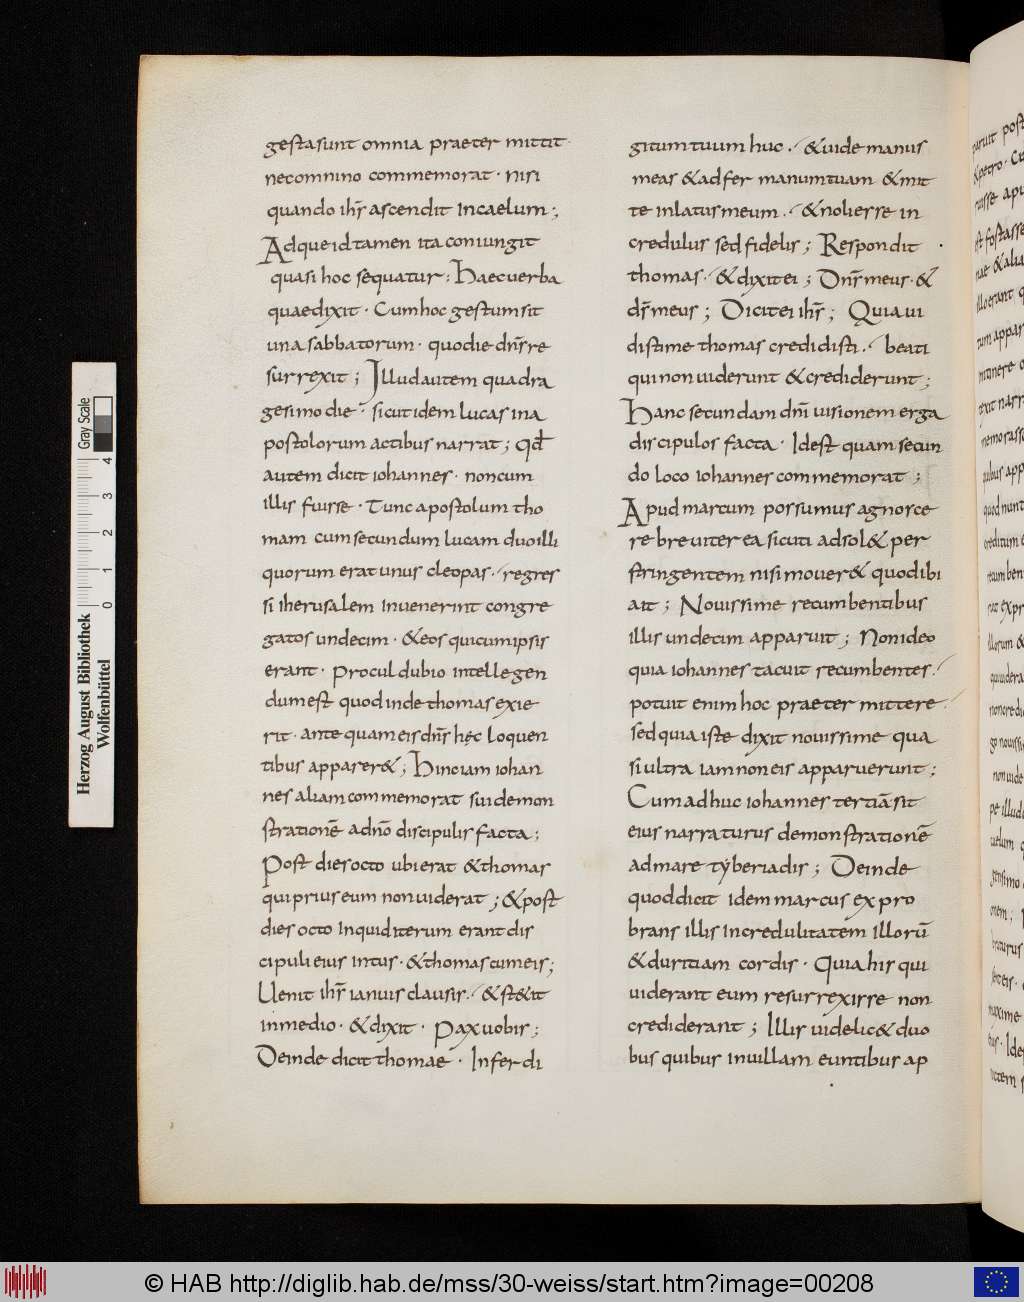 gesta sunt omnia praeter mittit·
nec omnino commemorat· nisi
quando ihs̄ ascendit in caelum·,
Adque id tamen ita coniungit
quasi hoc sequatur: Haec uerba
quae dixit· Cum hoc gestum sit
una sabbatorum· quo die dn̄s re
surrexit; Illud autem quadra
gesimo die· sicut idem lucas in a
postolorum actibus narrat; qđ
autem dicit iohannes· non cum
illis fuisse· Tunc apostolum tho
mam cum secundum lucam duo illi
quorum erat unus cleopas· regres
si iherusalem inuenerint congre
gatos undecim· &eos qui cum ipsis
erant· procul dubio intellegen
dum est quod inde thomas exie
rit· ante quam eis dn̄s hęc loquen
tibus apparer&; Hinc iam iohan
nes aliam commemorat sui demon
strationē ad nō discipulis facta;
Post dies octo ubi erat &thomas
qui prius eum non uiderat; &post
dies octo inquid iterum erant dis
cipuli eius intus· &thomas cum eis;
Uenit ihs̄ ianuis clausis· &st&it
in medio· &dixit· pax uobis;
Deinde dicit thomae· Infer di
gitum tuum huc· &uide manus
meas &adfer manum tuam &mit
te in latus meum· &noli esse in
credulus sed fidelis; Respondit
thomas· &dixit ei; Dn̄s meus· &
ds̄ meus; Dicit ei ihs̄; Quia ui
disti me thomas credidisti· beati
qui non uiderunt &crediderunt;
Hanc secundam dn̄i uisionem erga
discipulos facta· Id est quam secun
do loco iohannes commemorat;
Apud marcum possumus agnosce
re breuiter ea sicuti ad sol& per
stringentem nisi mouer& quod ibi
ait; Nouissime recumbentibus
illis undecim apparuit; Non ideo
quia iohannes tacuit recumbentes·
potuit enim hoc praeter mittere·
sed quia iste dixit nouissime qua
si ultra iam non eis apparuerunt;
Cum adhuc iohannes tertiā sit
eius narraturus demonstrationē
ad mare tyberiadis; Deinde
quod dicit idem marcus expro
brans illis incredulitatem illorū
&duritiam cordis· Quia his qui
uiderant eum resurrexisse non
crediderant; Illis uidelic& duo
bus quibus in uillam euntibus ap
Herzog August Bibliothek
Wolfenbüttel
0 1 2 3 4
Gray Scale
© HAB http://diglib.hab.de/mss/30-weiss/start.htm?image=00208